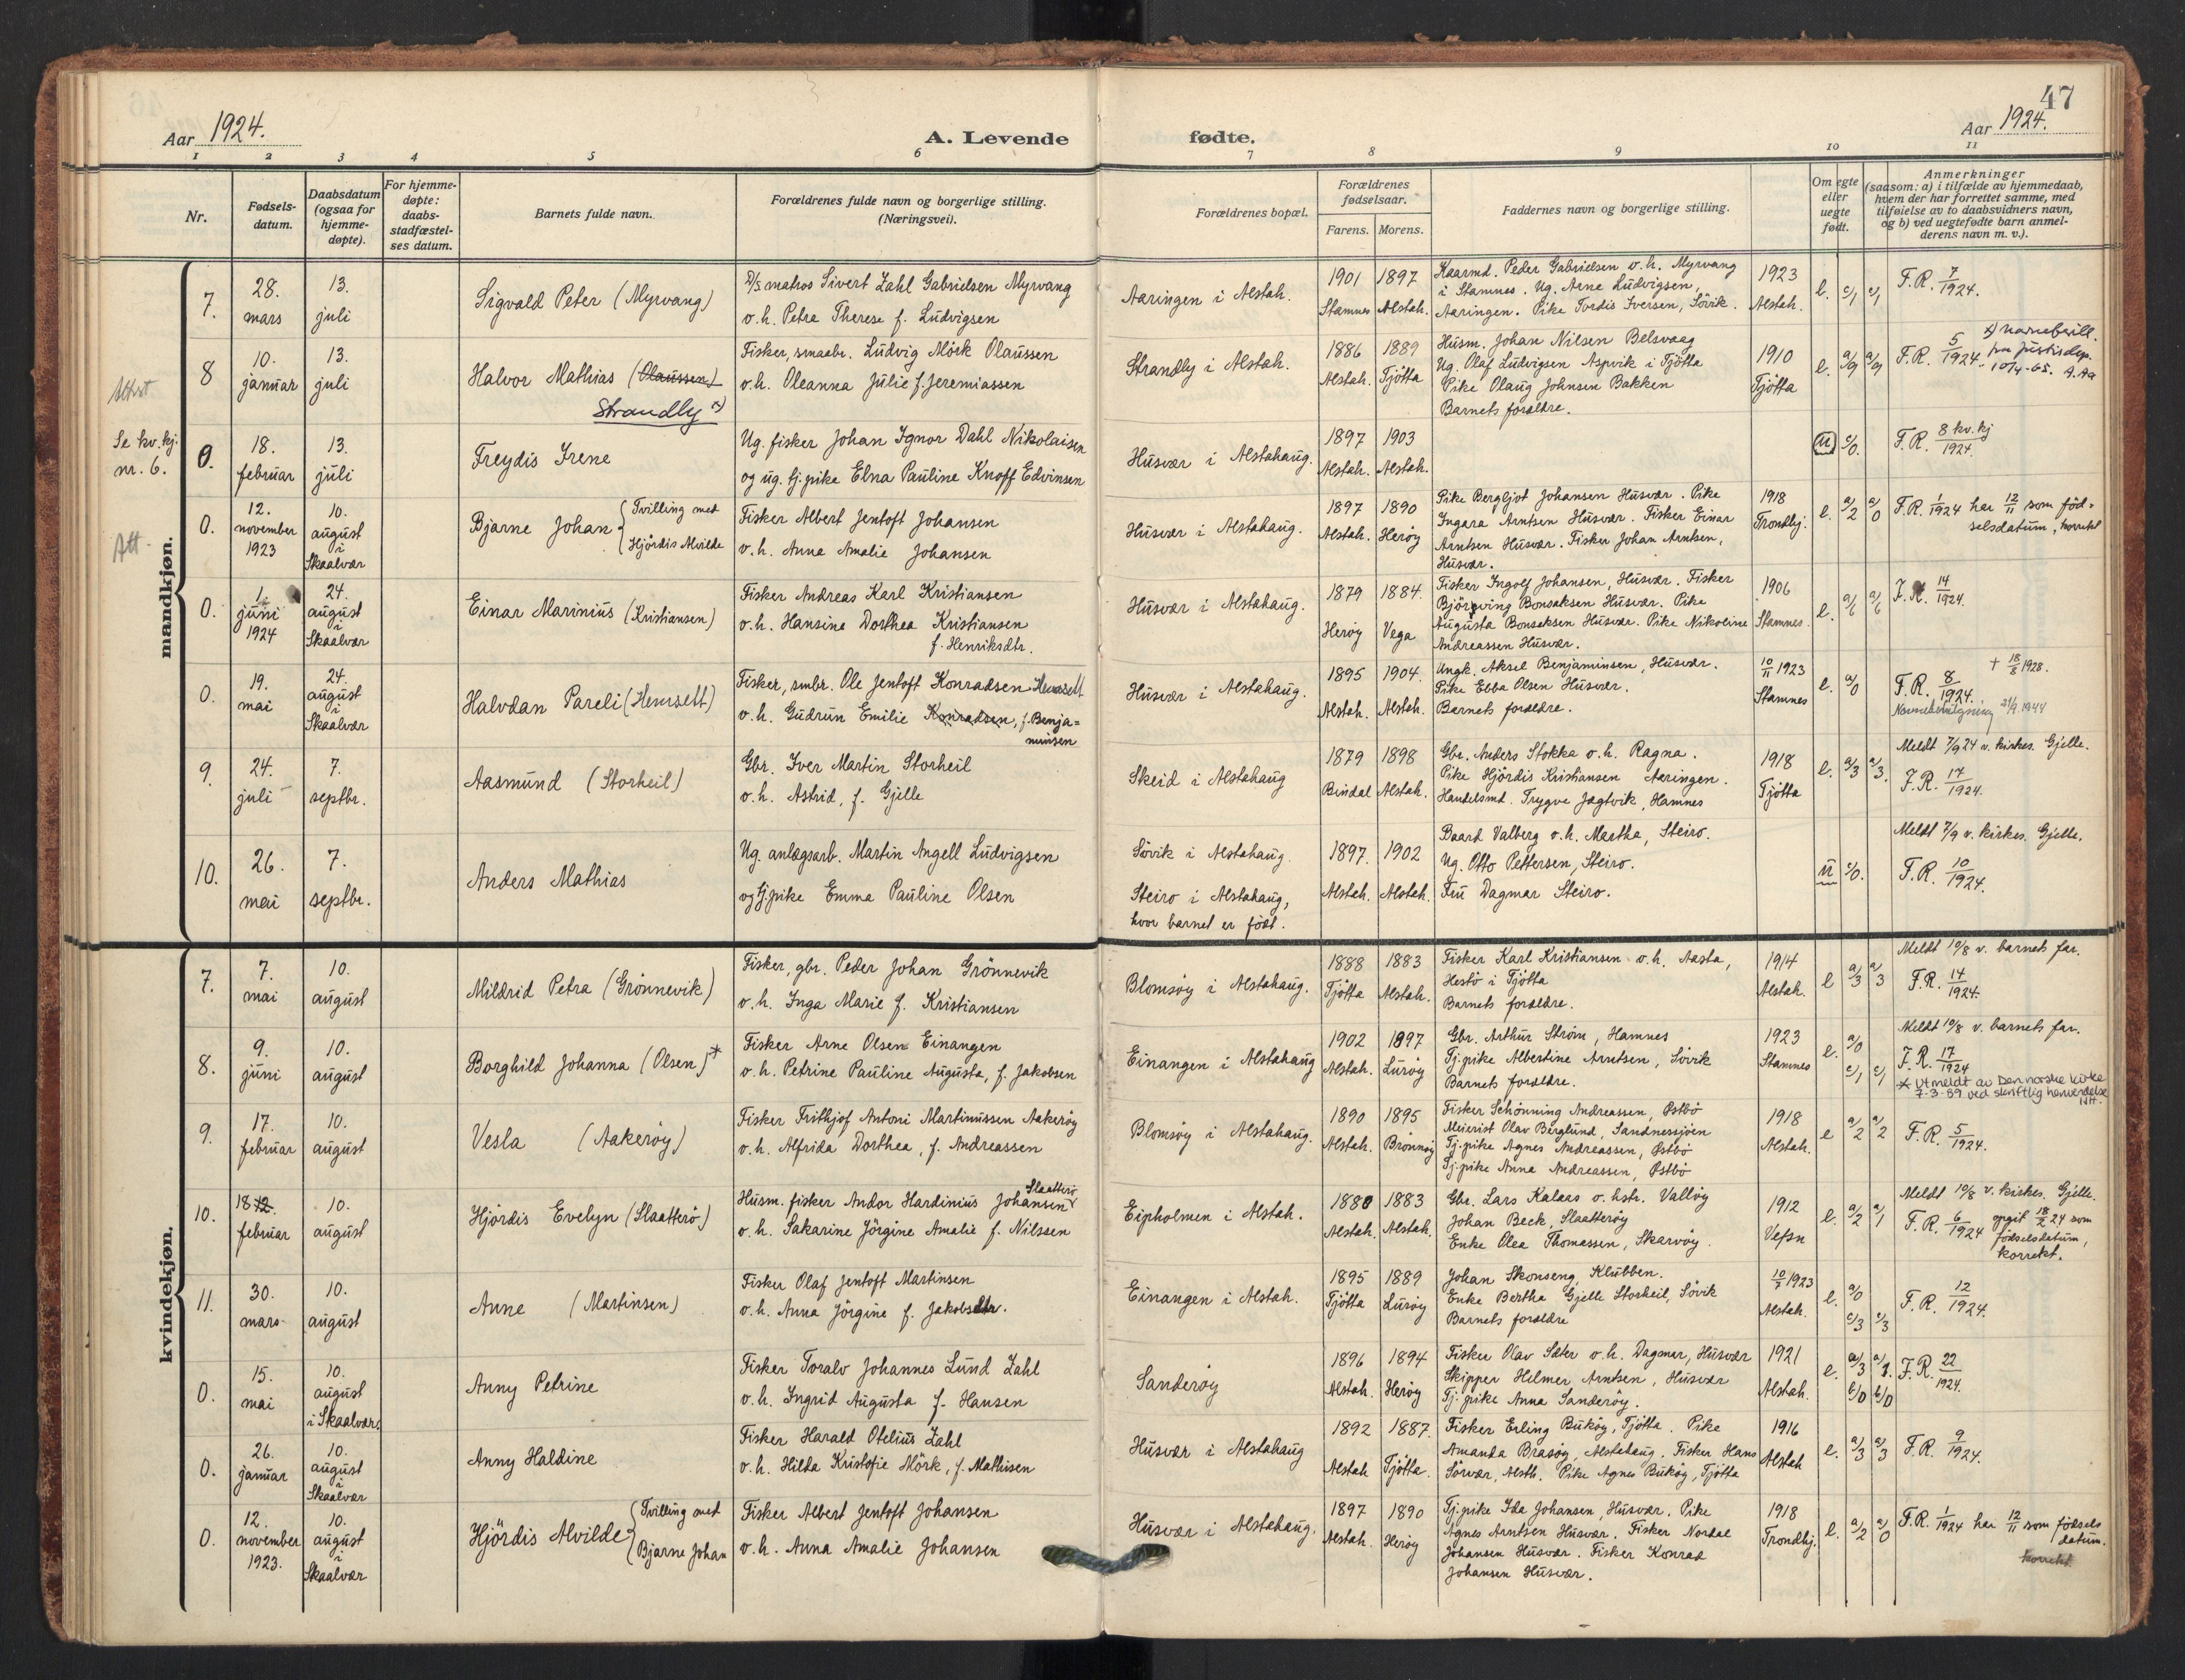 47
Aar 1924.
A. Levende fødte.
Aar 1924.
1 2 3 4 5 6 7 8 9 10 11
Nr.
Fødselsdatum.
Daabsdatum (ogsaa for hjemmedøpte).
For hjemmedøpte: daabsstadfæstelses datum.
Barnets fulde navn.
Forældrenes fulde navn og borgerlige stilling. (Næringsvei).
Forældrenes bopæl.
Forældrenes fødselsaar.
Farens. Morens.
Faddernes navn og borgerlige stilling.
Om egte eller uegte født.
Anmerkninger (saasom: a) i tilfælde av hjemmedaab, hvem der har forrettet samme, med tilføielse av to daabsvidners navn, og b) ved uegtefødte barn anmelderens navn m. v.).
mandkjøn.
7. 28. mars 13. juli
Sigvald Peter (Myrvang)
D/s matros Sivert Zahl Gabrielsen Myrvang
o.h. Petra Therese f. Ludvigsen
Aaringen i Alstah.
1901 Stamnes 1897 Alstah.
Kaarmd. Peder Gabrielsen o.h. Myrvang
i Stamnes. Ug. Arne Ludvigsen,
Aaringen. Pike Tordis Iversen, Søvik.
1923 Alstah.
e. c/1 c/1
F.R. 7/1924.
Attest
8 10. januar 13. juli
Halvor Mathias (Olaussen)
Strandly x)
Fisker, smaabr. Ludvig Mörk Olaussen
o.h. Oleanna Julie f. Jeremiassen
Strandly i Alstah.
1886 Alstah. 1889 Tjötta
Husm. Johan Nilsen Belsvaag
Ug. Olaf Ludvigsen Aspvik i Tjötta
Pike Olaug Johnsen Bakken
Barnets forældre.
1910 Tjötta
e. a/9 a/9
F.R. 5/1924.
x) navnebevill.
fra Justisdep.
10/4-65. A.Aa
Se kv.kj. nr. 6.
0. 18. februar 13. juli
Freydis Irene
Ug. fisker Johan Ignor Dahl Nikolaisen
og ug. tj.pike Elna Pauline Knoff Edvinsen
Husvær i Alstahaug.
1897 Alstah. 1903 Alstah.
u c/0.
F.R. 8 kv.kj/1924.
Att.
0. 12. november 1923 10. august i Skaalvær
Bjarne Johan {Tvilling med Hjördis Alvilde
Fisker Albert Jentoft Johansen
o.h. Anna Amalie Johansen
Husvær i Alstahaug.
1897 Alstah. 1890 Heröy
Pike Bergljot Johansen Husvær. Pike
Ingara Arntsen Husvær. Fisker Einar
Arntsen Husvær. Fisker Johan Arntsen,
Husvær.
1918 Trondhj.
e. a/2 a/0
F.R. 1/1924 har 12/11 som fødselsdatum, korrekt
0. 1. juni 1924 24. august i Skaalvær
Einar Marinius (Kristiansen)
Fisker Andreas Karl Kristiansen
o.h. Hansine Dorthea Kristiansen
f. Henriksdtr.
Husvær i Alstahaug.
1879 Heröy 1884. Vega
Fisker Ingolf Johansen, Husvær. Fisker
Björgving Bonsaksen Husvær. Pike
Augusta Bonsaksen Husvær. Pike Nikoline
Andreassen Husvær.
1906 Stamnes.
e. a/6 a/6
F.R. 14/1924.
0. 19. mai 24. august i Skaalvær
Halvdan Pareli (Hemsett)
Fisker, smbr. Ole Jentoft Konradsen Hemsett
o.h. Gudrun Emilie Konradsen, f. Benjaminsen
Husvær i Alstahaug.
1895 Alstah. 1904. Alstah.
Ungk. Aksel Benjaminsen, Husvær.
Pike Ebba Olsen Husvær.
Barnets forældre.
10/11 1923 Stamnes
e. a/0
+ 18/8 1928.
F.R. 8/1924.
9. 24. juli 7. septbr.
Aasmund (Storheil)
Gbr. Iver Martin Storheil
o.h. Astrid, f. Gjelle
Skeid i Alstahaug
1879 Bindal 1898 Alstah.
Gbr. Anders Stokka o.h. Ragna.
Pike Hjördis Kristiansen Aaringen.
Handelsmd. Trygve Jægtvik, Hamnes
1918 Tjötta
e. a/3 a/3.
Meldt 7/9 24 v. kirkes. Gjelle.
F.R. 17/1924.
10. 26. mai 7. septbr.
Anders Mathias
Ug. anlægsarb. Martin Angell Ludvigsen
og tj.pike Emma Pauline Olsen
Søvik i Alstahaug.
Steiro i Alstahaug,
hvor barnet er født.
1897. Alstah. 1902 Alstah.
Baard Valberg o.h. Martha, Steiro.
Ug. Otto Pettersen, Steiro.
Fru Dagmar Steiro.
u c/0.
Meldt 7/9 v. kirkes. Gjelle.
F.R. 10/1924.
kvindekjøn.
7. 7. mai 10. august
Mildrid Petra (Grönnevik)
Fisker, gbr. Peder Johan Grönnevik
o.h. Inga Marie f. Kristiansen
Blomsöy i Alstahaug.
1888 Tjötta 1883 Alstah.
Fisker Karl Kristiansen o.h. Aasta,
Hestö i Tjötta
Barnets forældre.
1914 Alstah.
e a/3 a/3
Meldt 10/8 v. barnets far.
F.R. 14/1924.
8. 9. juni 10. august
Borghild Johanna (Olsen)*
Fisker Arne Olsen Einangen
o.h. Petrine Pauline Augusta, f. Jakobsen
Einangen i Alstahaug
1902 Alstah. 1897 Luröy
Gbr. Arthur Ström, Hamnes
Tj.pike Albertine Arntsen, Sövik
Barnets forældre.
1923 Stamnes
e. a/0 c/1 c/1
Meldt 10/8 v. barnets far.
F.R. 17/1924
* Utmeldt av Den norske kirke
7-3-89 ved skriftlig henvendelse
9. 17. februar 10. august
Vesla (Aakeröy)
Fisker Frithjof Antoni Martinussen Aakeröy
o.h. Alfrida Dorthea, f. Andreassen
Blomsöy i Alstahaug.
1890 Alstah. 1895 Brönnöy
Fisker Schönning Andreassen, Østbö
Meierist Olav Berglund, Sandnessjöen
Tj.pike Agnes Andreassen, Østbö
Tj.pike Anna Andreassen, Østbö
1918 Alstah.
e a/2 a/2
F.R. 5/1924.
10. 18 12. februar 10. august
Hjördis Evelyn (Slaatterö.)
Husm. fisker Andor Hardinius Johansen Slaatterö
o.h. Sakarine Jörgine Amalie f. Nilssen
Eipholmen i Alstah.
1880 Alstah. 1883 Alstah.
Gbr. Lars Kalaas o. hstr. Vallöy
Johan Beck, Slaatteröy
Enke Olea Thomassen, Skarvöy.
1912 Vefsn
e. a/2 a/1
Meldt 10/8 v. kirkes. Gjelle.
F.R. 6/1924 opgit 18/2 24 som fødselsdatum, korrekt.
11. 30. mars 10. august
Anne (Martinsen)
Fisker Olaf Jentoft Martinsen
o.h. Anna Jörgine f. Jakobsdtr.
Einangen i Alstah.
1895 Tjötta 1889 Luröy
Johan Skonseng, Klubben.
Enke Bertha Gjelle Storheil, Sövik
Barnets forældre
10/7 1923 Alstah.
e. a/0 c/3 c/3
F.R. 12/1924.
0. 15. mai 10. august i Skaalvær
Anny Petrine
Fisker Toralv Johannes Lund Zahl
o.h. Ingrid Augusta f. Hansen
Sanderöy
1896 Alstah. 1894 Heröy
Fisker Olav Sæter o.h. Dagmar, Husvær
Skipper Helmer Arntsen, Husvær
Tj.pike Anna Sanderöy.
1921 Alstah.
e. a/3 a/1. b/0 b/0
F.R. 22/1924.
0. 26. januar 10. august i Skaalvær
Anny Haldine
Fisker Harald Otelius Zahl
o.h. Hilda Kristofie Mörk, f. Mathisen
Husvær i Alstahaug
1892 Alstah 1887. Tjötta.
Fisker Erling Buköy, Tjötta. Pike
Amanda Brasöy, Alstahaug. Fisker Hans
Sörvær, Alsth. Pike Agnes Buköy, Tjötta
1916 Alstah
e. a/3 a/3
F.R. 9/1924.
0. 12. november 1923. 10. august i Skaalvær
Hjördis Alvilde {Tvilling med Bjarne Johan
Fisker Albert Jentoft Johansen
o.h. Anna Amalie Johansen
Husvær i Alstahaug.
1897 Alstah. 1890 Heröy
Tj.pike Ida Johansen, Husvær. Pike
Agnes Arntsen Husvær. Fisker Nordal
Johansen Husvær. Fisker Konrad
Johansen Husvær.
1918 Trondhj.
e. a/2 a/0
F.R. 1/1924 har 12/11 som fødselsdatum.
korrekt.